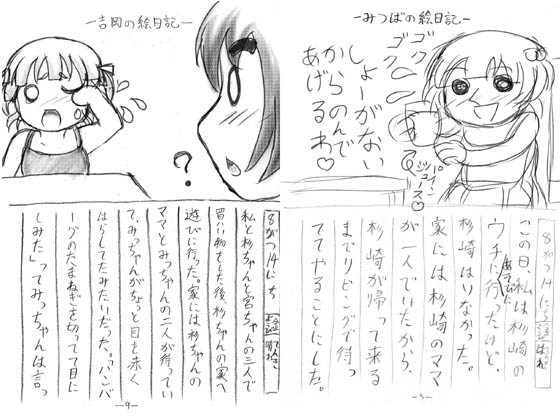 ―みつばの絵日記―
ゴク
ゴク
しょーがない
からのんで
あげるわ♡
パイン
ジュース♡
8がつ14にち
この日、私は杉崎の
ウチにあそびに行ったけど、
杉崎はいなかった。
家には杉崎のママ
が一人でいたから、
杉崎が帰って来る
までリビングで待っ
ててやることにした。
―吉岡の絵日記―
?
8がつ14にち
私と杉ちゃんと宮ちゃんの三人で
買い物をした後、杉ちゃんの家へ
遊びに行った。家には杉ちゃんの
ママとみっちゃんの二人が待ってい
て、みっちゃんがちょっと目を赤く
はらしてたみたいだった。「ハンバ
ーグのたまねぎを切ってて目に
しみた」ってみっちゃんは言っ
―9―